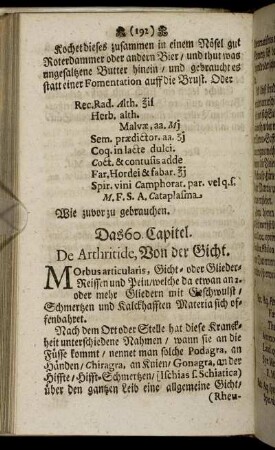 (192)
Kochet dieses zusammen in einem Nösel gut
Roterdammer oder andern Bier / und thut was
ungesaltzene Butter hinein / und gebraucht es
statt einer Fomentation auff die Brust. Oder
Rec. Rad. Alth. ℥iß
Herb. alth.
Malvæ, aa. Mj
Sem. prædictor. aa. ʒj
Coq. in lacte dulci.
Coct. & contusis adde
Far. Hordei & fabar. ℥j
Spir. vini Camphorat. par. vel q. s.
M. F. S. A. Cataplasma.
Wie zuvor zu gebrauchen.
Das 60. Capitel.
De Arthritide, Von der Gicht.
Morbus articularis, Gicht- oder Glieder-
Reissen und Pein / welche da etwan an 2.
oder mehr Gliedern mit Geschwulst /
Schmertzen und Kalckhafften Materia sich of-
fenbahret.
Nach dem Ort oder Stelle hat diese Kranck-
heit unterschiedene Nahmen / wann sie an die
Füsse kommt / nennet man solche Podagra, an
Händen / Chiragra, an Knien / Gonagra, an der
Hüffte / Hüfft-Schmertzen / [Ischias s. Schiatica]
über den gantzen Leib eine allgemeine Gicht /
(Rheu-